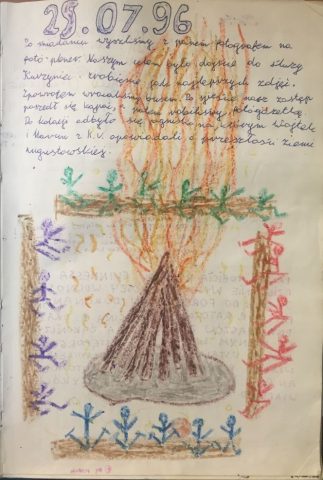 25.07.96
Po śniadaniu wyszliśmy z panem fotografem na
foto-plener. Naszym celem było dojście do śluzy
Kurzyniec i zrobienie jak najlepszych zdjęć.
Spowrotem wracaliśmy busem. Po obiedzie nasz zastęp
poszedł się kąpać, a potem robiliśmy fotogazetkę.
Po kolacji odbyło się ognisko na którym
i Marcin z K.V. opowiadali o przeszłości Ziemi
Augustowskiej.